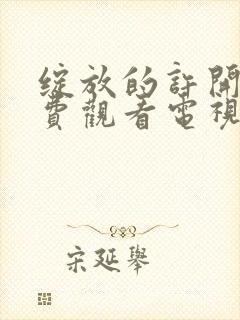 綻放的許開
費觀看電視
宋延舉